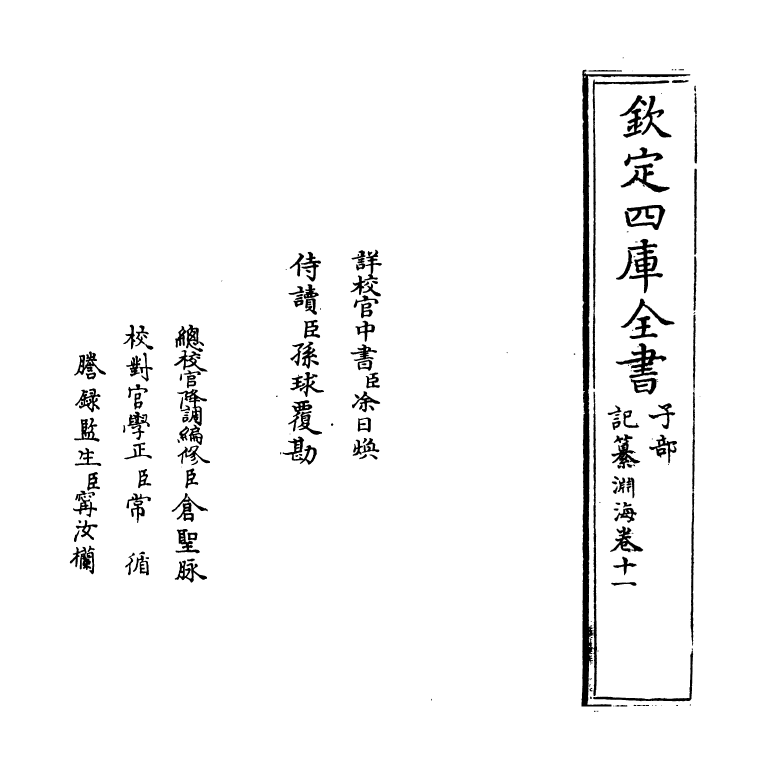 欽定四庫全書
子部
記纂淵海卷十一
詳校官中書臣凃日煥
侍讀臣孫球覆勘
總校官降調編修臣倉聖脉
校對官學正臣常循
謄錄監生臣甯汝欄